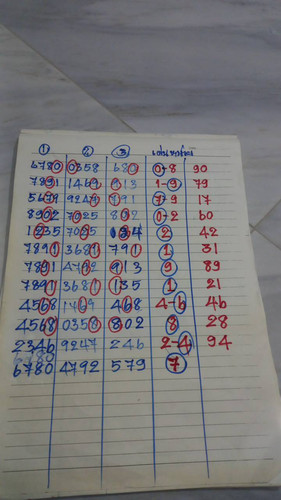 ① ② ③
6780 0358 680 0-8 90
7891 1469 913 1-9 79
5679 9247 791 7-9 17
8902 7025 802 0-2 60
1235 7025 134 2 42
7891 3681 791 1 31
7891 4792 913 9 89
7891 3681 135 1 21
4568 1469 468 4-6 46
4568 0358 802 8 28
2346 9247 246 2-4 94
6780
6780 4792 579 7